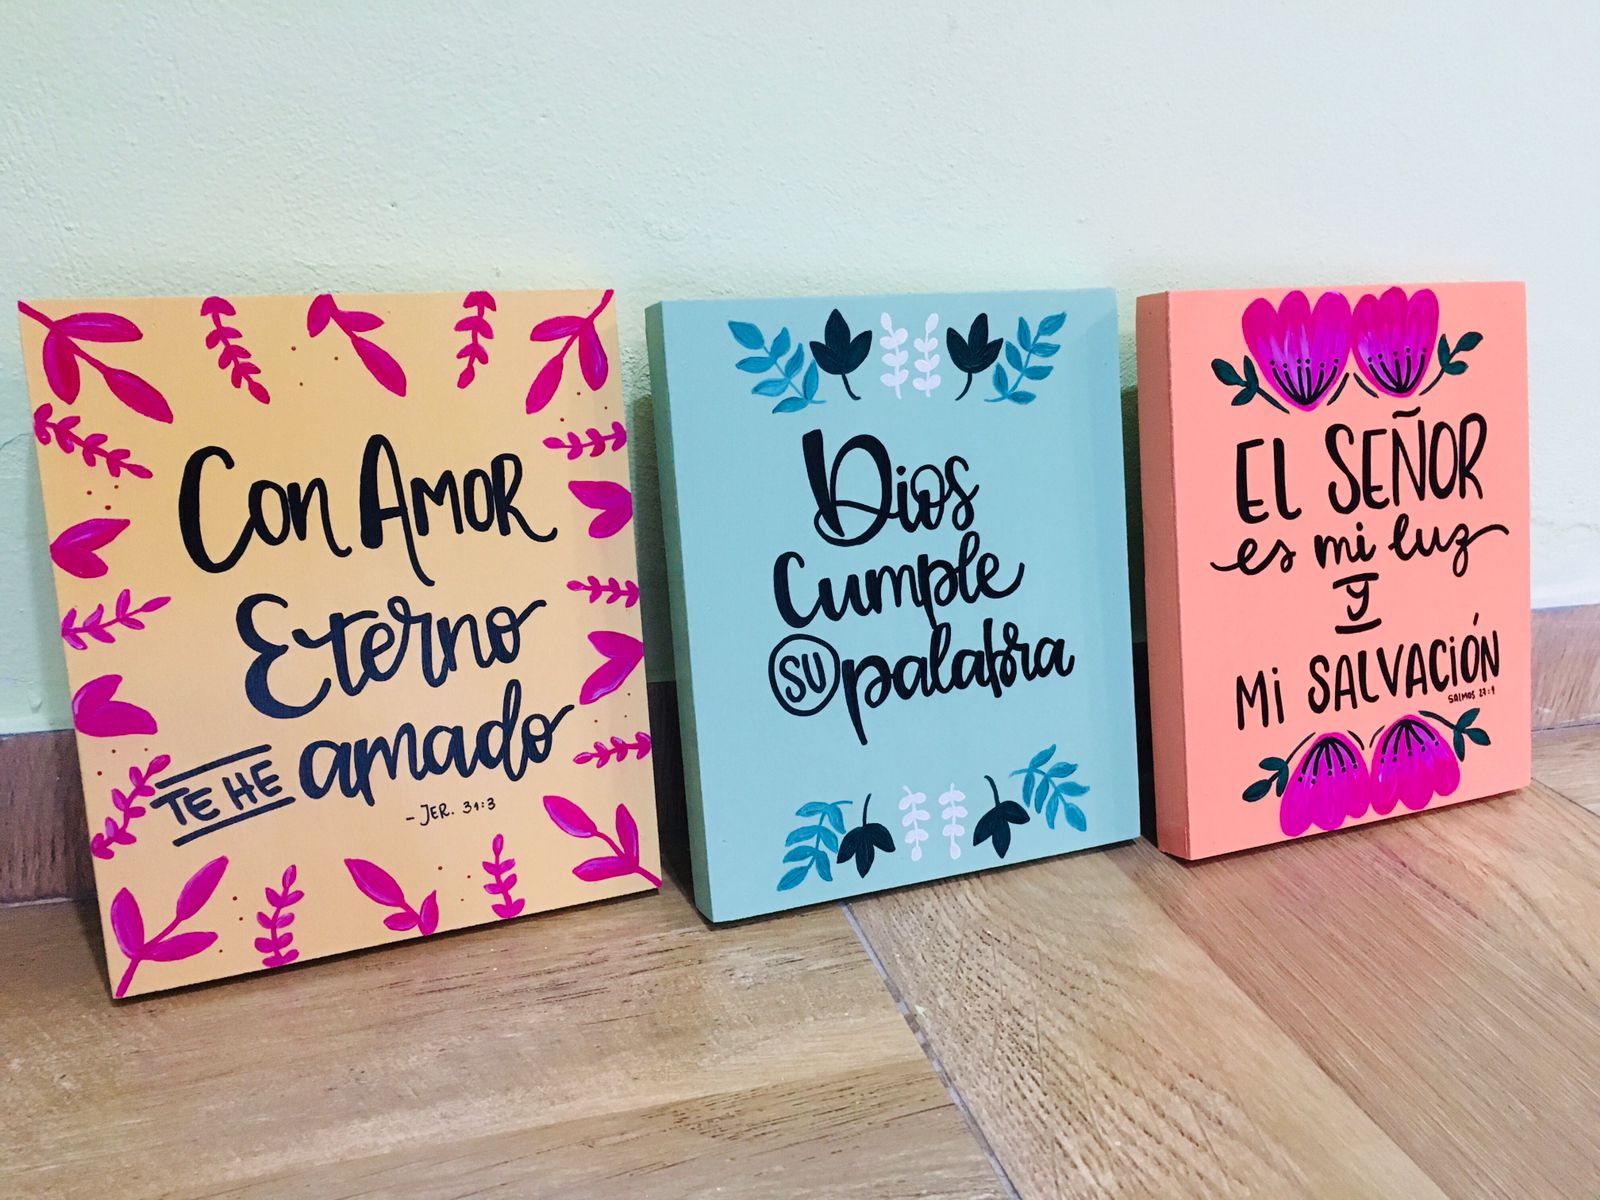 Con Amor
Eterno
TE HE amado
- JER. 31:3
Dios
Cumple
SU palabra
EL SEÑOR
es mi luz
y
Mi SALVACIÓN
SALMOS 27:1